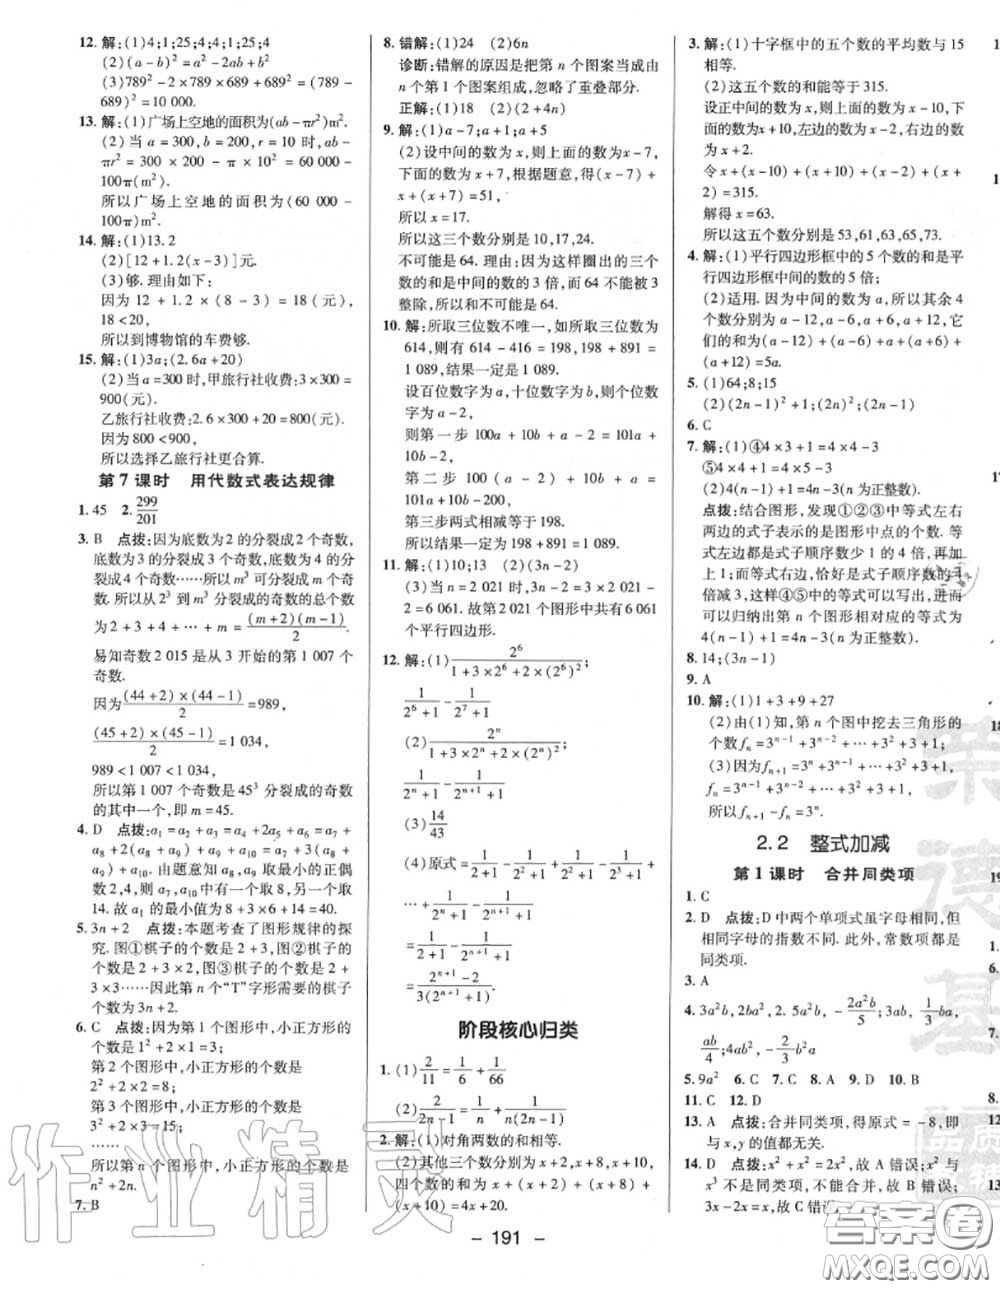 12. 解:(1)4;1;25;4;4;1;25;4
(2)(a-b)²=a²-2ab+b²
(3)789²-2×789×689+689²=(789-
689)²=10 000.
13. 解:(1)广场上空地的面积为(ab-πr²)m².
(2)当 a=300, b=200, r=10 时, ab-
πr²=300×200-π×10²=60 000-
100π(m²).
所以广场上空地的面积为(60 000-
100π)m².
14. 解:(1)13.2
(2)[12+1.2(x-3)]元.
(3)够. 理由如下:
因为 12+1.2×(8-3)=18(元),
18<20,
所以到博物馆的车费够.
15. 解:(1)3a;(2.6a+20)
(2)当 a=300 时,甲旅行社收费:3×300=
900(元).
乙旅行社收费:2.6×300+20=800(元).
因为 800<900,
所以选择乙旅行社更合算.
第7课时 用代数式表达规律
1. 45 2. 299/201
3. B 点拨:因为底数为2的分裂成2个奇数,
底数为3的分裂成3个奇数,底数为4的分
裂成4个奇数……所以 m³ 可分裂成 m 个奇
数. 所以从 2³ 到 m³ 分裂成的奇数的总个数
为 2+3+4+…+m=(m+2)(m-1)/2.
易知奇数 2 015 是从3开始的第 1 007 个
奇数.
因为(44+2)×(44-1)/2=989,
(45+2)×(45-1)/2=1 034,
989<1 007<1 034,
所以第 1 007 个奇数是 45³ 分裂成的奇数
的其中一个,即 m=45.
4. D 点拨:a₁=a₂+a₃=a₄+2a₅+a₆=a₇+
a₈+2(a₈+a₉)+a₉+a₁₀=a₇+3(a₈+
a₉)+a₁₀. 由题意知 a₈, a₉ 取最小的正偶
数,a₇, a₁₀ 中有一个取8,另一个取
14. 故 a₁ 的最小值为 8+3×6+14=40.
5. 3n+2 点拨:本题考查了图形规律的探
究. 图①棋子的个数为 2+3,图②棋子的个
数为 2+3×2,图③棋子的个数为 2+
3×3……因此第 n 个“T”字形需要的棋子
个数为 3n+2.
6. C 点拨:因为第1个图形中,小正方形的个
数是 1²+2×1=3;
第2个图形中,小正方形的个数是
2²+2×2=8;
第3个图形中,小正方形的个数是
3²+2×3=15;
……
所以第 n 个图形中,小正方形的个数是
n²+2n.
7. B
8. 错解:(1)24 (2)6n
诊断:错解的原因是把第 n 个图案当成由
n 个第1个图案组成,忽略了重叠部分.
正解:(1)18 (2)(2+4n)
9. 解:(1)a-7;a+1;a+5
(2)设中间的数为 x,则上面的数为(x-7),
下面的数为 x+7,根据题意,得(x-7)+
x+(x+7)=51,
所以 x=17.
所以这三个数分别是 10,17,24.
不可能是 64. 理由:因为这样圈出的三个
数的和是中间的数的3倍,而64不能被3
整除,所以和不可能是 64.
10. 解:所取三位数不唯一,如所取三位数为
614,则有 614-416=198, 198+891=
1 089,结果一定是 1 089.
设百位数字为 a,十位数字为 b,则个位数
字为 a-2,
则第一步 100a+10b+a-2=101a+
10b-2,
第二步 100(a-2)+10b+a=101a+
10b-200,
第三步两式相减等于 198.
所以结果一定是 198+891=1 089.
11. 解:(1)10;13 (2)(3n-2)
(3)当 n=2 021 时,3n-2=3×2 021-
2=6 061. 故第 2 021 个图形中共有 6 061
个平行四边形.
12. 解:(1)2⁶/(1+3×2⁶+2×(2⁶)²);
1/(2⁶+1)-1/(2⁷+1)
(2)2ⁿ/(1+3×2ⁿ+2×(2ⁿ)²);
1/(2ⁿ+1)-1/(2ⁿ⁺¹+1)
(3)14/43
(4)原式=1/(2+1)-1/(2²+1)+1/(2²+1)-
1/(2³+1)+…+1/(2ⁿ+1)-1/(2ⁿ⁺¹+1)
=1/(2+1)-1/(2ⁿ⁺¹+1)
=(2ⁿ⁺¹-2)/(3(2ⁿ⁺¹+1)).
阶段核心归类
1. (1)2/11=1/6+1/66
(2)2/(2n-1)=1/n+1/(n(2n-1))
2. 解:(1)对角两数的和相等.
(2)其他三个数分别为 x+2, x+8, x+10,
四个数的和为 x+(x+2)+(x+8)+
(x+10)=4x+20.
3. 解:(1)十字框中的五个数的平均数与15
相等.
(2)这五个数的和能等于 315.
设正中间的数为 x,则上面的数为 x-10,下
面的数为x+10,左边的数为 x-2,右边的数
为 x+2.
令 x+(x-10)+(x+10)+(x+2)+(x-
2)=315.
解得 x=63.
所以这五个数分别是 53,61,63,65,73.
4. 解:(1)平行四边形框中的5个数的和是平
行四边形框中间的数的5倍;
(2)适用. 因为中间的数为 a,所以其余4
个数分别为 a-12,a-6,a+6,a+12,它
们的和为(a-12)+(a-6)+a+(a+6)+
(a+12)=5a.
5. (1)64;8;15
(2)(2n-1)²+1;(2n)²;(2n-1)
6. C
7. 解:(1)④4×3+1=4×4-3
⑤4×4+1=4×5-3
(2)4(n-1)+1=4n-3(n为正整数).
点拨:结合图形,发现①②③中等式左右
两边的式子表示的是图形中点的个数. 等
式左边都是式子顺序数少1的4倍,再加
上1;而等式右边,恰好是式子顺序数的4
倍减3,这样④⑤中的等式可以写出,进而
可以归纳出第 n 个图形相对应的等式为
4(n-1)+1=4n-3(n为正整数).
8. 14;(3n-1)
9. A
10. 解:(1)1+3+9+27
(2)由(1)知,第 n 个图中挖去三角形的
个数 fₙ=3ⁿ⁻¹+3ⁿ⁻²+…+3²+3+1.
(3)因为 fₙ₊₁=3ⁿ+3ⁿ⁻¹+…+3²+3+1,
fₙ=3ⁿ⁻¹+3ⁿ⁻²+…+3²+3+1,
所以 fₙ₊₁-fₙ=3ⁿ.
2.2 整式加减
第1课时 合并同类项
1. C
2. D 点拨:D中两个单项式虽字母相同,但
相同字母的指数不同. 此外,常数项都是
同类项.
3. A
4. 3a²b, 2ba², 2.5a²b, -2a²b/5; 1/3ba,
ab/4; 4ab², -2/3b²a
5. 9a² 6. C 7. B 8. A 9. D 10. B
11. C 12. D
13. A 点拨:合并同类项,得原式=-8,即
与 x,y 的值都无关.
14. D 点拨:x²+x²=2x²,故 A 错误;x² 与
x³ 不是同类项,不能合并,故 B 错误;
3x-2x=x,故 C 错误
- 191 -
作业精灵
荣德基
答案圈
MXQE.COM